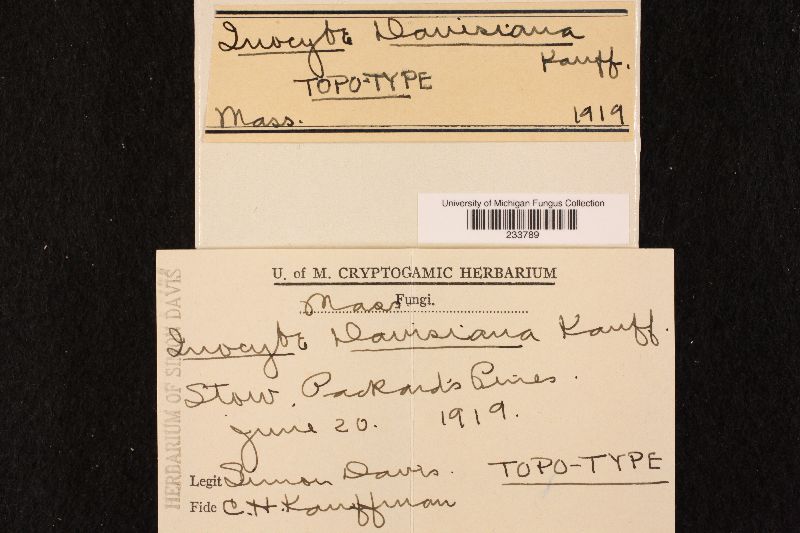 Inocybe Davisiana
Kauff.
TOPO-TYPE
Mass. 1919
University of Michigan Fungus Collection
233789
U. of M. CRYPTOGAMIC HERBARIUM
Mass Fungi.
Inocybe Davisiana Kauff.
Stow. Packard's Pines.
June 20. 1919.
Legit Simon Davis. TOPO-TYPE
Fide C.H. Kauffman
HERBARIUM OF SIMON DAVIS